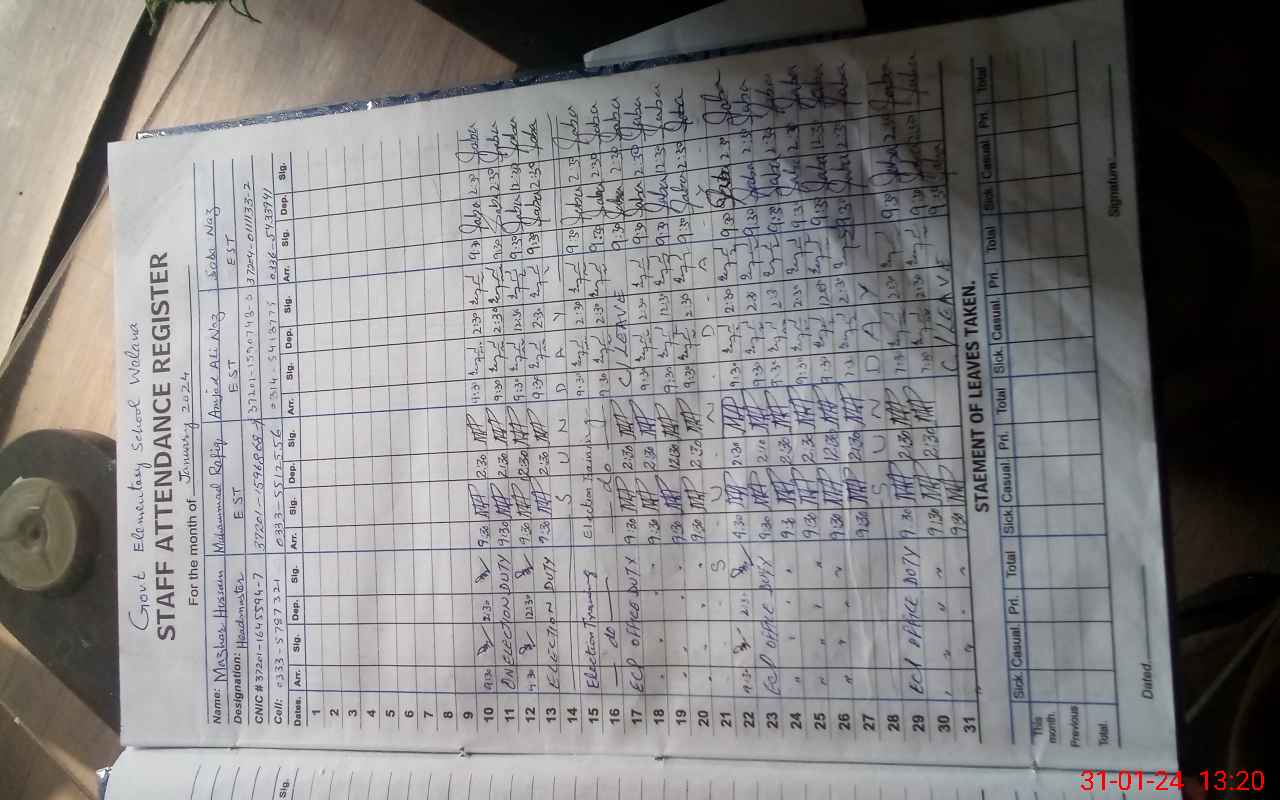 Govt Elementary School Wolana
STAFF ATTENDANCE REGISTER
For the month of January 2024
Name: Mazhar Hussain Muhammad Rafiq Amjad Ali Naz Saba Naz
Designation: Headmaster EST EST EST
CNIC # 37201-1645594-7 37201-1596868-7 37204-0111133-2
Cell: 0333-5787321 0333-5512556 0314-5413777
Dates. Arr. Sig. Dep. Sig. Arr. Sig. Dep. Sig. Arr. Sig. Dep. Sig. Arr. Sig. Dep. Sig.
1
2
3
4
5
6
7
8
9
10 9:30 2:30 9:30 2:30 9:30 2:30 9:30 Saba 2:30 Saba
11 ON ELECTION DUTY 9:30 2:30 9:30 2:30 9:30 Saba 2:30 Saba
12 9:30 12:30 9:30 12:30 9:30 12:30 9:30 Saba 12:30 Saba
13 ELECTION DUTY 9:30 2:30 9:30 2:30 9:30 Saba 2:30 Saba
14 S U N D A Y
15 Election Training Election Training 9:30 2:30 9:30 Saba 2:30 Saba
16 do do 9:30 2:30 9:30 Saba 2:30 Saba
17 ECP OFFICE DUTY 9:30 2:30 C/LEAVE 9:30 Saba 2:30 Saba
18 " " " " 9:30 2:30 9:30 2:30 9:30 Saba 2:30 Saba
19 " " " " 9:30 12:30 9:30 12:30 9:30 Saba 12:30 Saba
20 " " " " 9:30 2:30 9:30 2:30 9:30 Saba 2:30 Saba
21 S U N D A Y
22 9:30 2:30 9:30 2:30 9:30 2:30 9:30 Saba 2:30 Saba
23 ECP OFFICE DUTY 9:30 9:30 9:30 Saba 2:30 Saba
24 " " " " 9:30 2:30 9:30 2:30 9:30 Saba 2:30 Saba
25 " " " " 9:30 2:30 9:30 2:30 9:30 Saba 2:30 Saba
26 " " " " 9:30 12:30 9:30 12:30 9:30 Saba 12:30 Saba
27 9:30 2:30 9:30 2:30 9:30 Saba 2:30 Saba
28 S U N D A Y
29 ECP OFFICE DUTY 9:30 2:30 9:30 2:30 9:30 Saba 2:30 Saba
30 " " " " 9:30 2:30 9:30 2:30 9:30 Saba 2:30 Saba
31 " " " " 9:30 C/LEAVE 9:30 Saba
STAEMENT OF LEAVES TAKEN.
Sick Casual. Pri. Total Sick Casual. Pri. Total Sick. Casual. Pri. Total Sick Casual Pri. Total
This month.
Previous
Total.
Dated. Signature.
Sig.
31-01-24 13:20